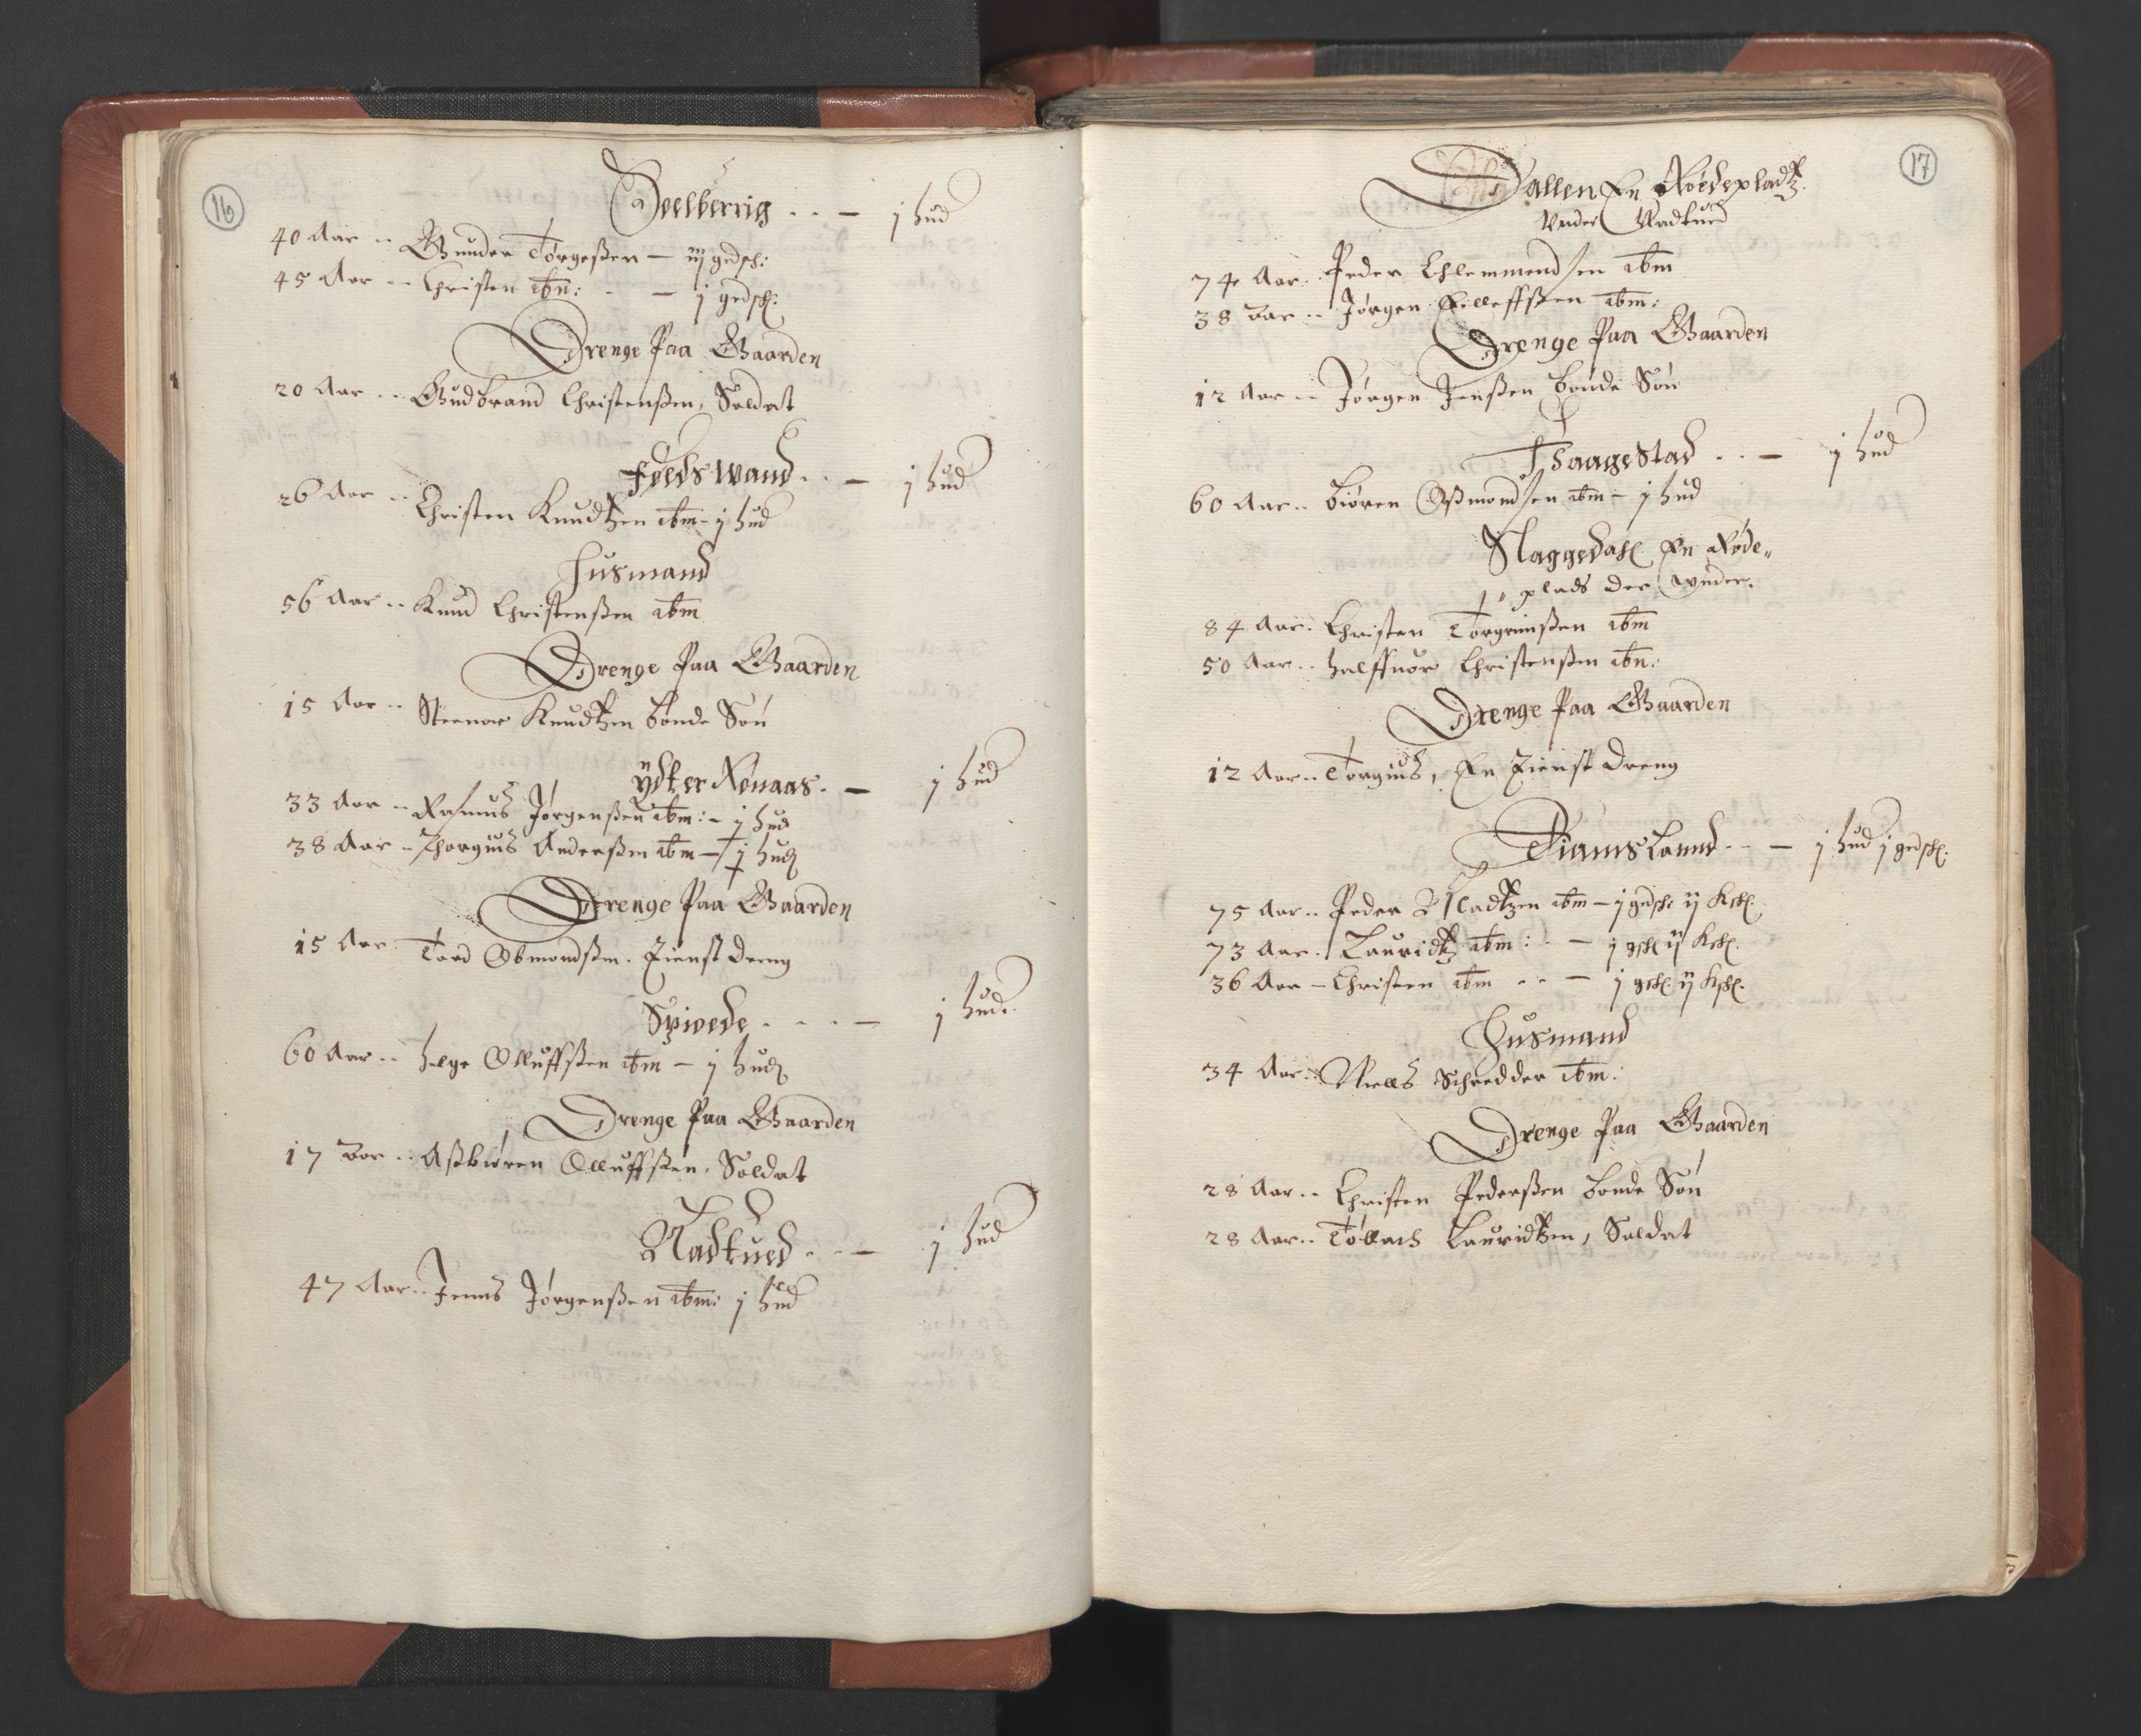 16
Deelberrig . . — j hud
40 Aar .. Gunder Tørgeßen — iij gedsk:
45 Aar .. Christen ibn: . — j gedsk:
Drenge Paa Gaarden
20 Aar .. Gudbrand Christenßen, Soldat
Foedswand . . — j hud
26 Aar .. Christen Knudtzen ibm — j hud
Husmand
56 Aar .. Knud Christenßen ibm
Drenge Paa Gaarden
15 Aar .. Steenar Knudtzen bonde Søn
Ydter Rønaas . — j hud
33 Aar .. Rasmus Jørgenßen ibm: — j hud
38 Aar .. Thorgius Anderßen ibm — j hud
Drenge Paa Gaarden
15 Aar Tord Obmondßen. Tienst dreng
Spivede . . . — j hud.
60 Aar .. helge Olluffßen ibm — j hud
Drenge Paa Gaarden
17 Aar .. Aßbiøren Olluffßen, Soldat
Nadtued . . — j hud
47 Aar .. Jenns Jørgenßen ibm: j hud
17
Dallen En Rødepladtz
Vnder Nadtued
74 Aar. Peder Chlemmendsen ibm
38 Aar .. Jørgen Eilleffßen ibm:
Drenge Paa Gaarden
12 Aar .. Jørgen Jenßen bonde Søn
Thaagestad . . — j hud
60 Aar .. biøren Oßmondsen ibm — j hud
Slaggedahl En Røde„
„plads der wnder.
84 Aar. Christen Torgrimßen ibm
50 Aar .. halffuor Christenßen ibn:
Drenge Paa Gaarden
12 Aar .. Torgius, En Tienst Dreng
Tiamsland . . — j hud j gedsk:
75 Aar .. Peder Adtzen ibm — j gedsk: ij Ksk.
73 Aar. Lauridtz ibm: . — j gsk ij Ksk.
36 Aar — Christen ibm . . — j gsk. ij Ksk.
Husmand
34 Aar .. Niells Schredder ibm:
Drenge Paa Gaarden
28 Aar .. Christen Pederßen bonde Søn
28 Aar .. Tollach Lauridtzen, Soldat